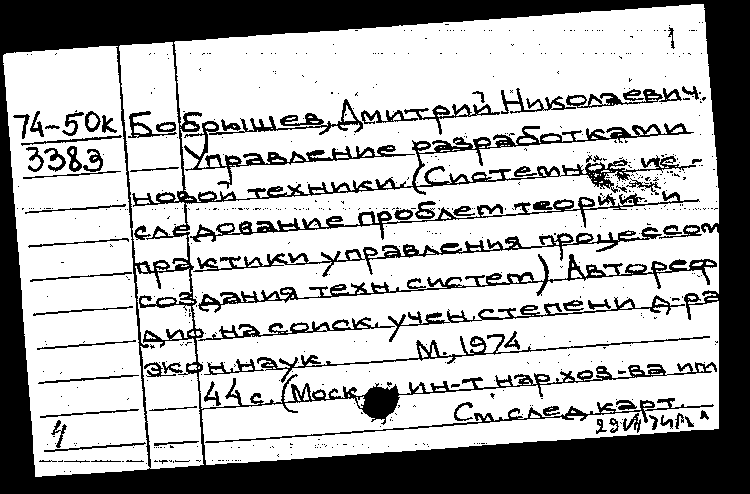 1
74-50к Бобрышев, Дмитрий Николаевич.
3383 Управление разработками
новой техники. (Системное ис-
следование проблем теории и
практики управления процессом
создания техн. систем). Автореф
дис. на соиск. учен. степени д-ра
экон. наук. М., 1974.
44 с. (Моск ин-т нар. хоз-ва им
См. след. карт.
4